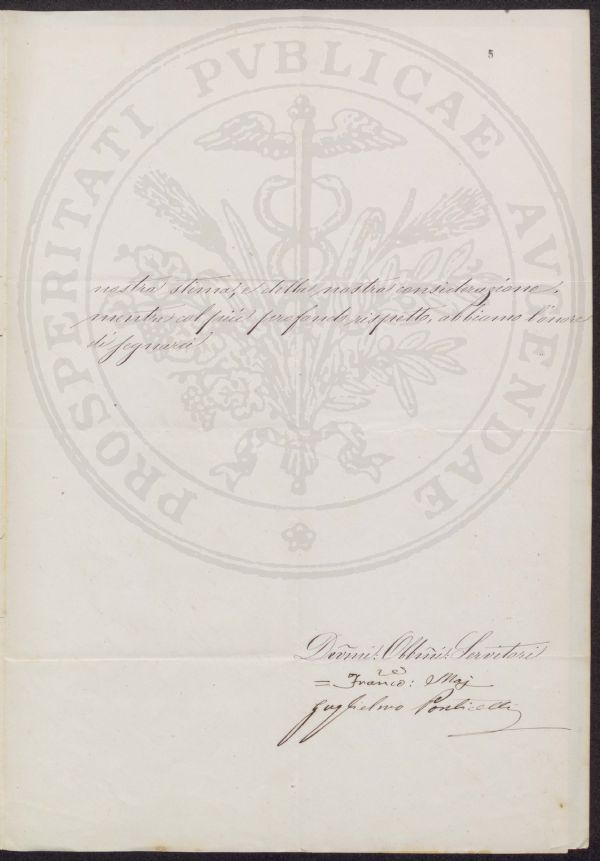 5
PROSPERITATI PVBLICAE AVGENDAE
nostra stima, e della nostra considerazione.
mentre col più profondo rispetto, abbiamo l'onore
di segnarci
Devmi: Obbmi: Servitori
= Franco: Maj
Guglielmo Ponticelli